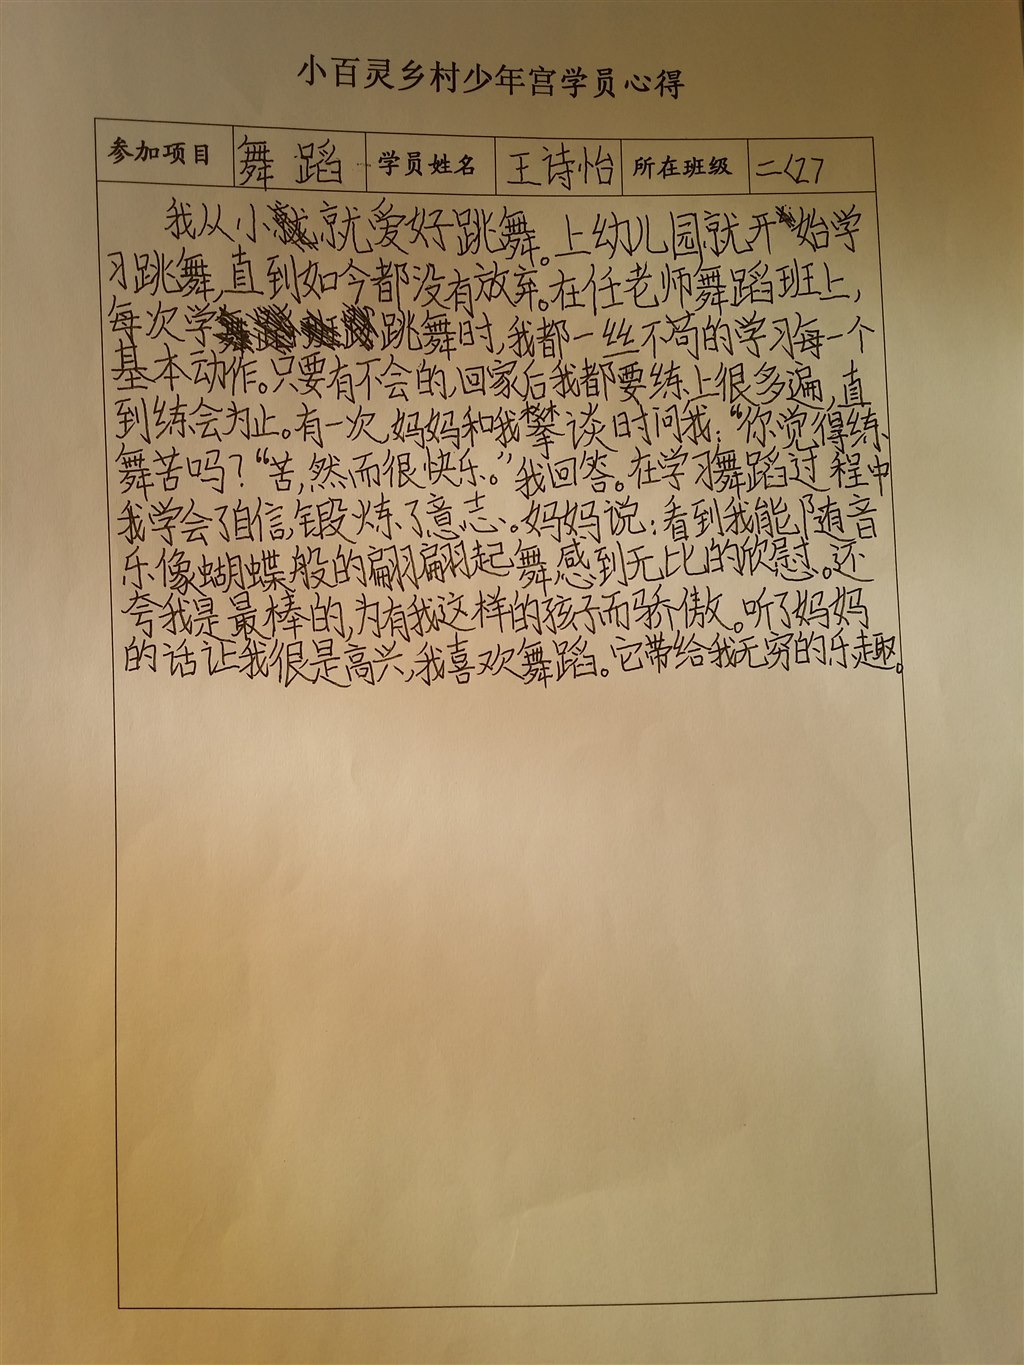 小百灵乡村少年宫学员心得
参加项目 舞蹈 学员姓名 王诗怡 所在班级 二<2>
我从小就爱好跳舞。上幼儿园,就开始学
习跳舞,直到如今都没有放弃。在任老师舞蹈班上,
每次学跳舞时,我都一丝不苟的学习每一个
基本动作。只要有不会的,回家后我都要练上很多遍,直
到练会为止。有一次,妈妈和我攀谈时问我:“你觉得练
舞苦吗?“苦,然而很快乐。”我回答。在学习舞蹈过程中
我学会了自信,锻炼了意志。妈妈说:看到我能随音
乐像蝴蝶般的翩翩起舞感到无比的欣慰。还
夸我是最棒的,为有我这样的孩子而骄傲。听了妈妈
的话让我很是高兴,我喜欢舞蹈。它带给我无穷的乐趣。